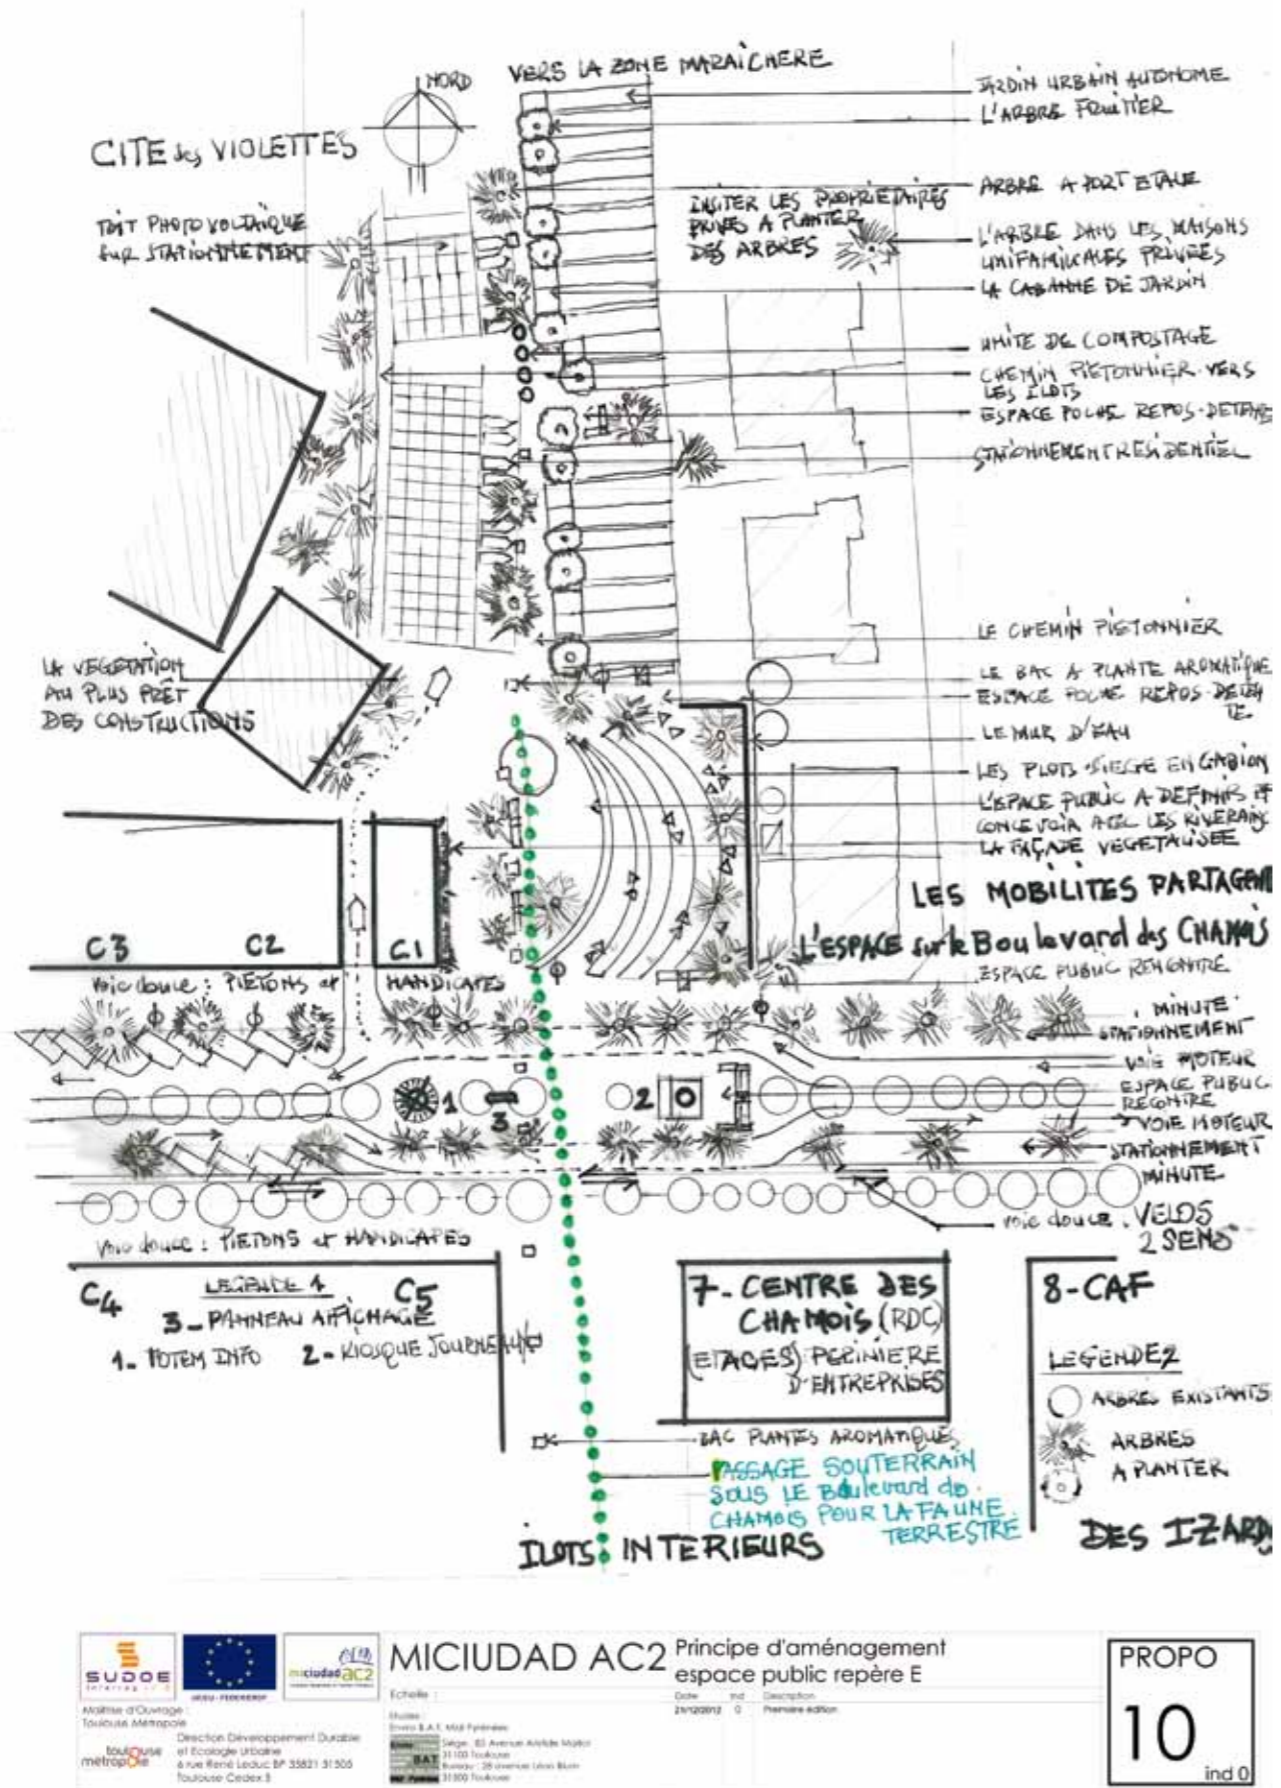 NORD
VERS LA ZONE MARAÎCHERE
CITE des VIOLETTES
TOIT PHOTOVOLTAÏQUE
SUR STATIONNEMENT
JARDIN URBAIN AUTONOME
L'ARBRE FRUITIER
ARBRE A PORT ETALE
INSITER LES PROPRIETAIRES
PRIVES A PLANTER
DES ARBRES
L'ARBRE DANS LES MAISONS
UNIFAMILIALES PRIVEES
LA CABANNE DE JARDIN
UNITE DE COMPOSTAGE
CHEMIN PIETONNIER VERS
LES ILOTS
ESPACE POCHE REPOS-DETENTE
STATIONNEMENT RESIDENTIEL
LE CHEMIN PIETONNIER
LA VEGETATION
AU PLUS PRÊT
DES CONSTRUCTIONS
LE BAC A PLANTE AROMATIQUE
ESPACE POCHE REPOS-DETEN
TE
LE MUR D'EAU
LES PLOTS-SIEGE EN GABION
L'ESPACE PUBLIC A DEFINIR ET
CONCEVOIR AVEC LES RIVERAINS
LA FAÇADE VEGETALISEE
LES MOBILITES PARTAGENT
L'ESPACE sur le Boulevard des CHAMOIS
ESPACE PUBLIC RENCONTRE
C3 C2 C1
voie douce : PIETONS et HANDICAPES
MINUTE
STATIONNEMENT
VOIE MOTEUR
ESPACE PUBLIC
RECONTRE
VOIE MOTEUR
STATIONNEMENT
MINUTE
1 3 2
voie douce : VELOS
2 SENS
voie douce : PIETONS et HANDICAPES
C4 LEGENDE 1 C5
3 - PANNEAU AFFICHAGE
1 - TOTEM INFO 2 - KIOSQUE JOURNEAUX
7 - CENTRE DES
CHAMOIS (RDC)
(ETAGES) PEPINIERE
D'ENTREPRISES
8 - CAF
LEGENDE 2
ARBRES EXISTANTS
ARBRES
A PLANTER
BAC PLANTES AROMATIQUES
PASSAGE SOUTERRAIN
SOUS LE Boulevard des
CHAMOIS POUR LA FAUNE
TERRESTRE
ILOTS INTERIEURS
DES IZARDS
SUDOE
miciudad ac2
MICIUDAD AC2
Principe d'aménagement
espace public repère E
PROPO
10
ind 0
Echelle :
Date ind Description
21/12/2012 0 Première édition
Maîtrise d'Ouvrage :
Toulouse Métropole
toulouse
métropole
Direction Développement Durable
et Ecologie Urbaine
6 rue René Leduc BP 35821 31505
Toulouse Cedex 5
31100 Toulouse
31500 Toulouse